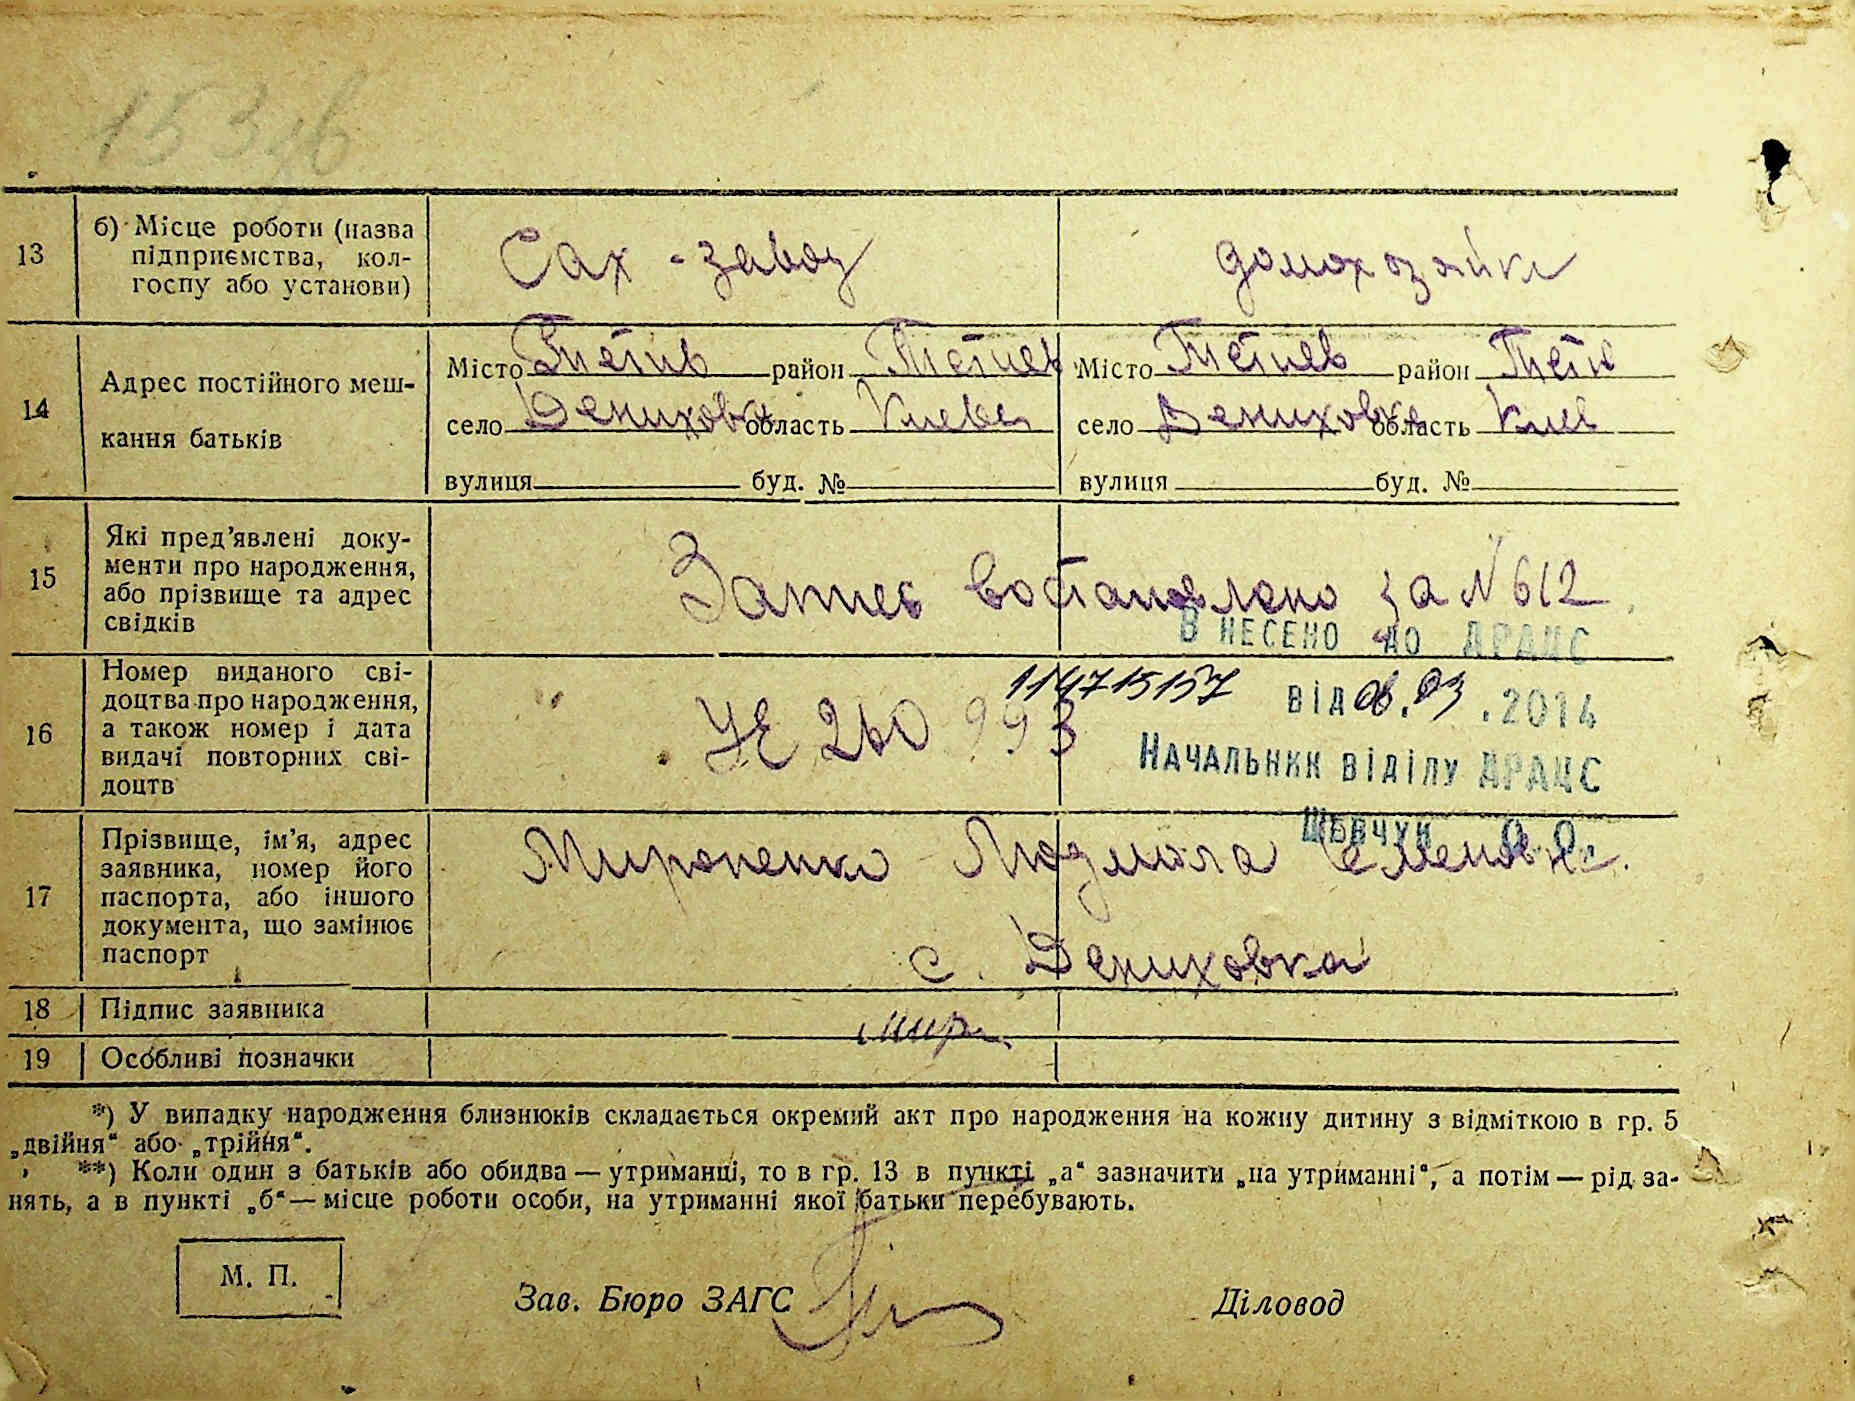 13
б) Місце роботи (назва
підприємства, кол-
госпу або установи)
Сах - завод
домохозяйка
14
Адрес постійного меш-
кання батьків
Місто Тетиев район Тетиев Місто Тетиев район Тети
село Дениховка область Киевс село Дениховка область Киев
вулиця буд. № вулиця буд. №
15
Які пред’явлені доку-
менти про народження,
або прізвище та адрес
свідків
Запись востановлено за №612
Внесено до ДРАЦС
16
Номер виданого сві-
доцтва про народження,
а також номер і дата
видачі повторних сві-
доцтв
114715157 від 06.03.2014
260993
Начальник відділу ДРАЦС
Шевчук О.О.
17
Прізвище, ім’я, адрес
заявника, номер його
паспорта, або іншого
документа, що замінює
паспорт
Мироненко Людмила Семеновна.
с. Дениховка
18 Підпис заявника
Мир
19 Особливі позначки
*) У випадку народження близнюків складається окремий акт про народження на кожну дитину з відміткою в гр. 5
„двійня“ або „трійня“.
**) Коли один з батьків або обидва — утриманці, то в гр. 13 в пункті „а“ зазначити „на утриманні“, а потім — рід за-
нять, а в пункті „б“ — місце роботи особи, на утриманні якої батьки перебувають.
М. П.
Зав. Бюро ЗАГС
Діловод